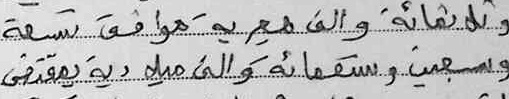 وثلاثمائة وألف هجرية موافق تسعة
وسبعين وتسعمائة وألف ميلادية بمقتضى